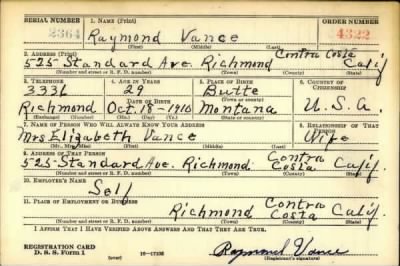 SERIAL NUMBER 1. NAME (Print) ORDER NUMBER
2364 Raymond Vance 4322
(First) (Middle) (Last)
2. ADDRESS (Print)
525 Standard Ave. Richmond Contra Costa Calif
(Number and street or R. F. D. number) (Town) (County) (State)
3. TELEPHONE 4. AGE IN YEARS 5. PLACE OF BIRTH 6. COUNTRY OF CITIZENSHIP
3336 29 Butte
DATE OF BIRTH (Town or county)
Richmond Oct. 18-1910 Montana U.S.A.
(Exchange) (Mo.) (Day) (Yr.) (State or country)
7. NAME OF PERSON WHO WILL ALWAYS KNOW YOUR ADDRESS 8. RELATIONSHIP OF THAT PERSON
Mrs Elizabeth Vance Wife
(Mr., Mrs., Miss) (First) (Middle) (Last)
9. ADDRESS OF THAT PERSON
525 Standard Ave. Richmond Contra Costa Calif.
(Number and street or R. F. D. number) (Town) (County) (State)
10. EMPLOYER'S NAME
Self
11. PLACE OF EMPLOYMENT OR BUSINESS
Richmond Contra Costa Calif.
(Number and street or R. F. D. number) (Town) (County) (State)
I AFFIRM THAT I HAVE VERIFIED ABOVE ANSWERS AND THAT THEY ARE TRUE.
REGISTRATION CARD
D. S. S. Form 1 Raymond Vance
(Registrant's signature)